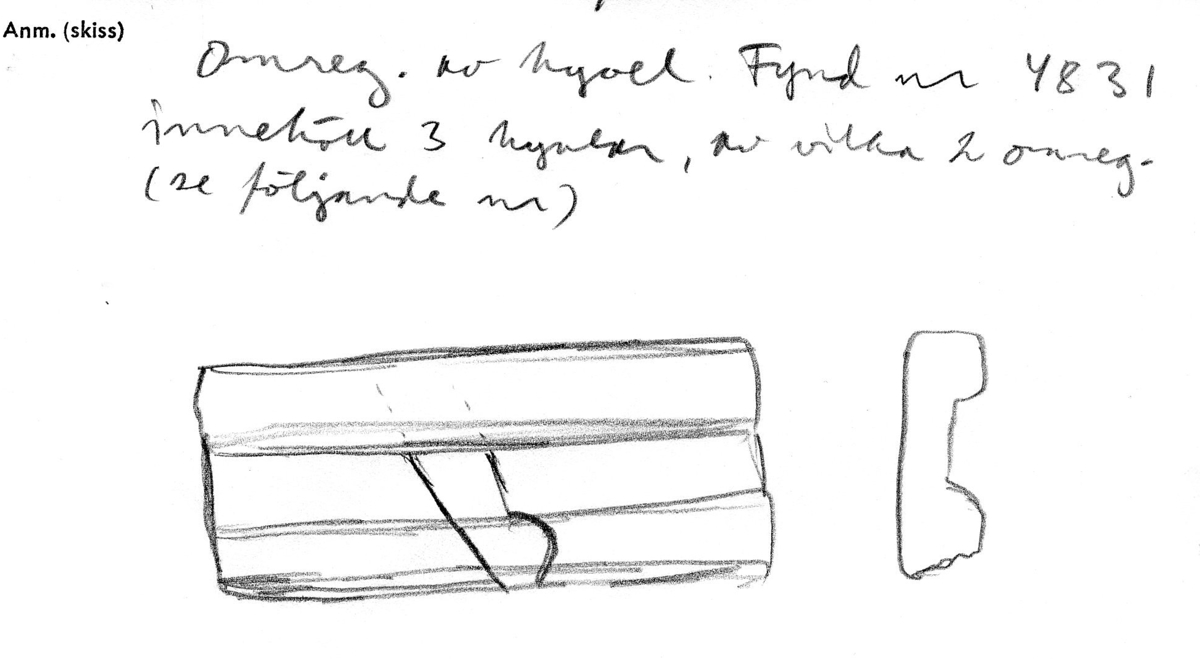 Anm. (skiss)
Omreg. av hyvel. Fynd nr 4831
innehöll 3 hyvlar, av vilka 2 omreg.
(se följande nr)